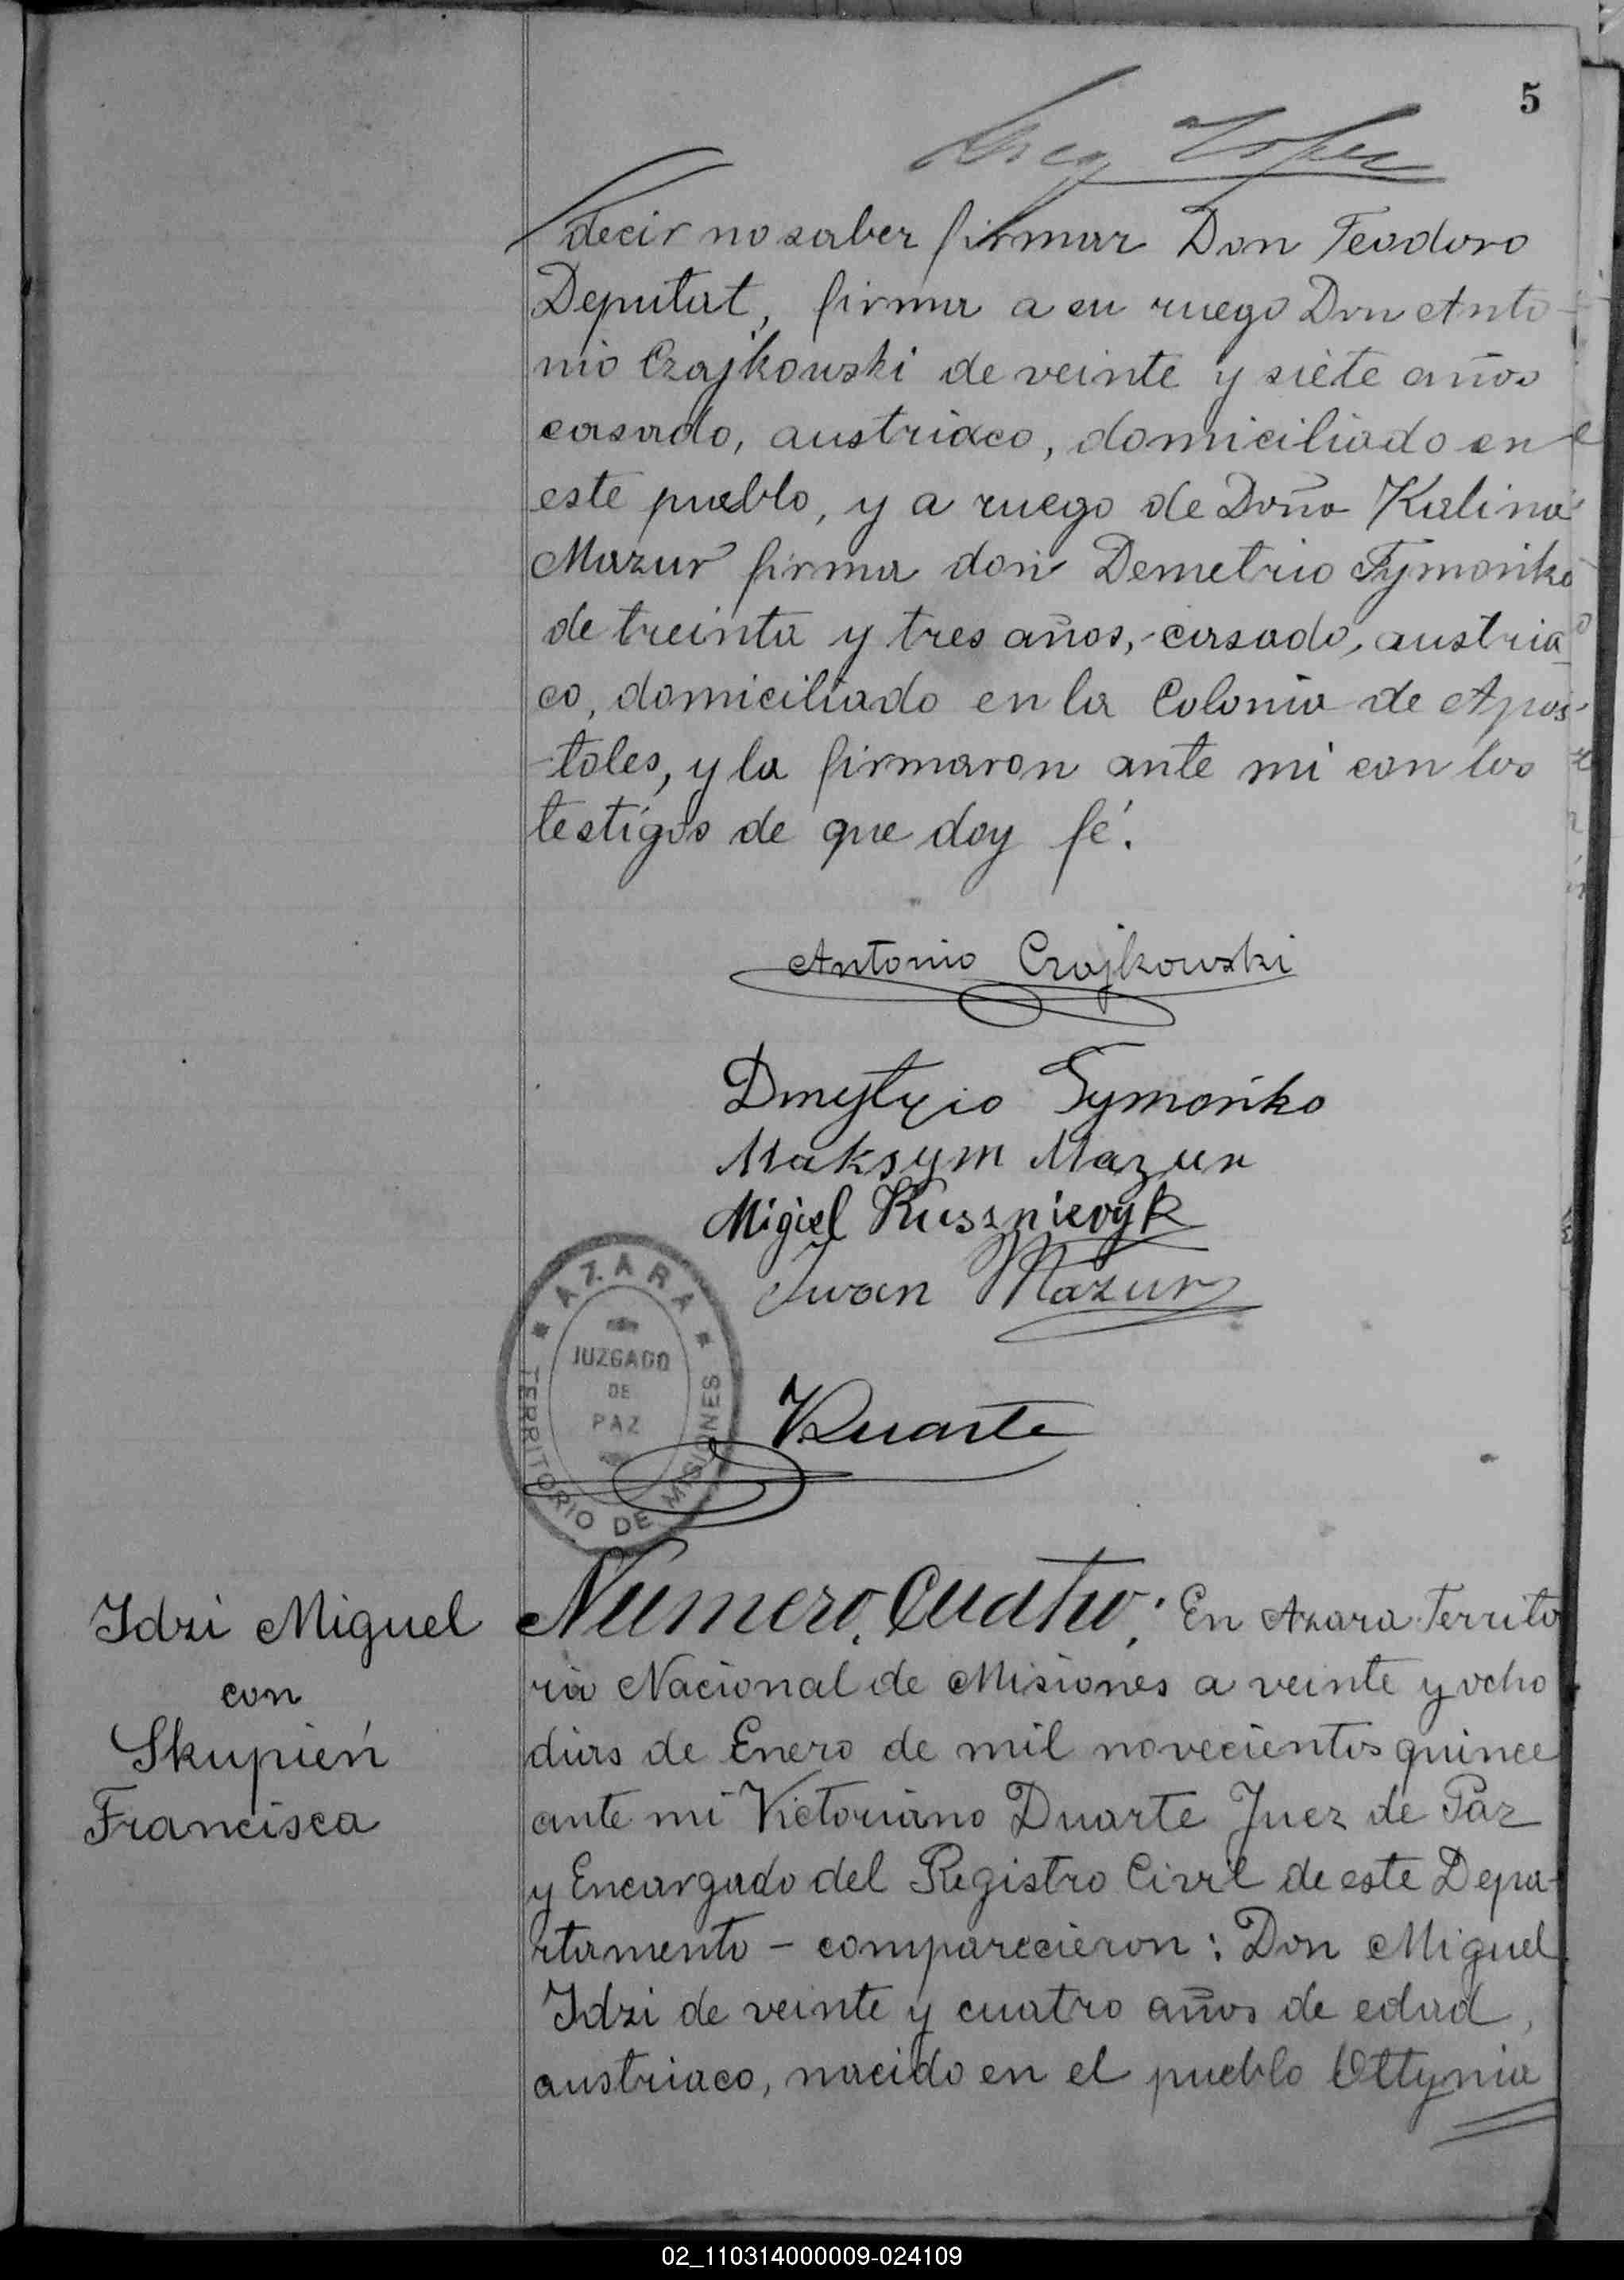 5
Lopez
decir no saber firmar Don Teodoro
Deputat, firma a su ruego Don Anto-
nio Czajkowski de veinte y siete años
casado, austriaco, domiciliado en
este pueblo, y a ruego de Doña Kalina
Mazur firma don Demetrio Tymońko
de treinta y tres años, casado, austria
co, domiciliado en la Colonia de Após-
toles, y la firmaron ante mi con los
testigos de que doy fé.
Antonio Czajkowski
Dmytrio Tymońko
Maksym Mazur
Migiel Kusznieryk
Iwan Mazur
AZARA
JUZGADO
DE
PAZ
TERRITORIO DE MISIONES
VDuarte
Idzi Miguel
con
Skupień
Francisca
Numero Cuatro: En Azara Territo
rio Nacional de Misiones a veinte y ocho
dias de Enero de mil novecientos quince
ante mi Victoriano Duarte Juez de Paz
y Encargado del Registro Civil de este Depa-
rtamento – comparecieron: Don Miguel
Idzi de veinte y cuatro años de edad,
austriaco, nacido en el pueblo Ottynia
02_110314000009-024109